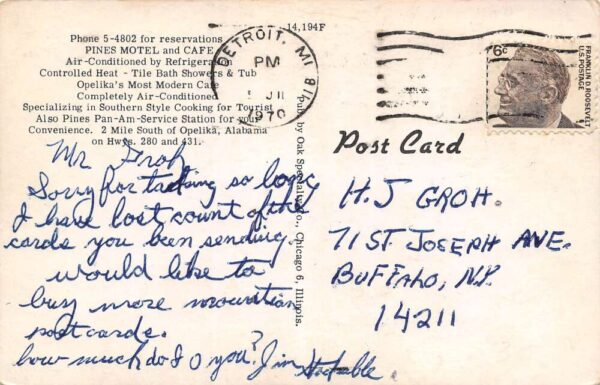 14,194F
Phone 5-4802 for reservations
PINES MOTEL and CAFE
Air-Conditioned by Refrigeration
Controlled Heat - Tile Bath Showers & Tub
Opelika's Most Modern Cafe
Completely Air-Conditioned
Specializing in Southern Style Cooking for Tourist
Also Pines Pan-Am-Service Station for your
Convenience. 2 Mile South of Opelika, Alabama
on Hwys. 280 and 431.
Mr Groh
Sorry for taking so long
I have lost count of the
cards you been sending.
would like to
buy more
postcards.
how much do I O you? Jim
Pub. by Oak Specialty Co., Chicago 6, Illinois.
DETROIT, MI 811
PM
1970
6c
FRANKLIN D. ROOSEVELT
U.S. POSTAGE
Post Card
H.J GROH.
71 ST. JOSEPH AVE.
BUFFALO, N.Y.
14211